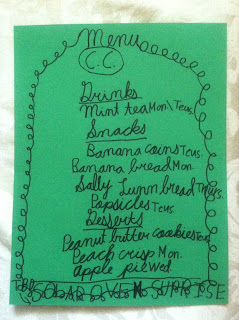 Menu
C.C.
Drinks
Mint tea Mon\Teus.
Snacks
Banana coins Teus.
Banana bread Mon.
Sally Lunn bread
Popsicles Teus.
Desserts
Peanut butter cookies
Peach crisp Mon.
Apple pie Wed.
SOLAR OVEN